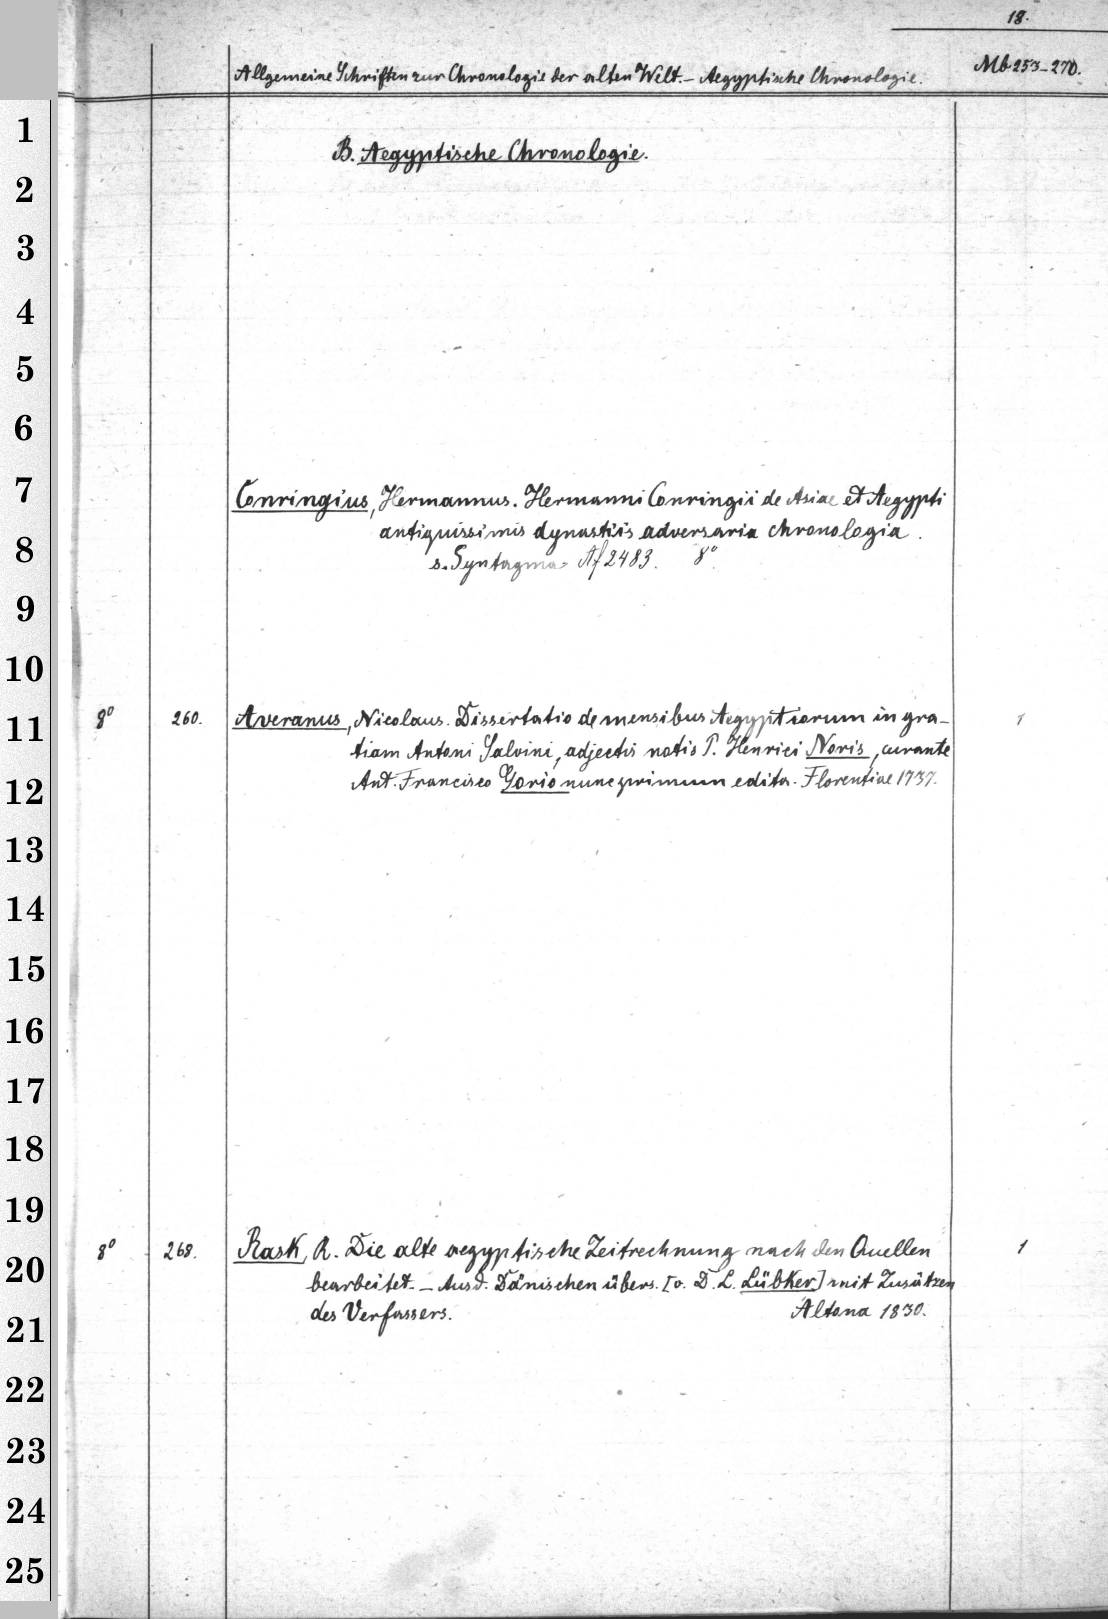 18.
Allgemeine Schriften zur Chronologie der alten Welt. – Aegyptische Chronologie.
Mb 253–270.
B. Aegyptische Chronologie.
Conringius, Hermannus. Hermanni Conringii de Asiae et Aegypti
antiquissimis dynastiis adversaria chronologia.
s. Syntagma Af 2483. 8°.
8° 260. Averanus, Nicolaus. Dissertatio de mensibus Aegyptiorum in gra- 1
tiam Antoni Salvini, adjectis notis P. Henrici Noris, curante
Ant. Francisco Gorio nunc primum edita. Florentiae 1737.
8° 268. Rask, R. Die alte aegyptische Zeitrechnung nach den Quellen 1
bearbeitet. – Aus d. Dänischen übers. [v. D. L. Lübker] mit Zusätzen
des Verfassers. Altona 1830.
1
2
3
4
5
6
7
8
9
10
11
12
13
14
15
16
17
18
19
20
21
22
23
24
25